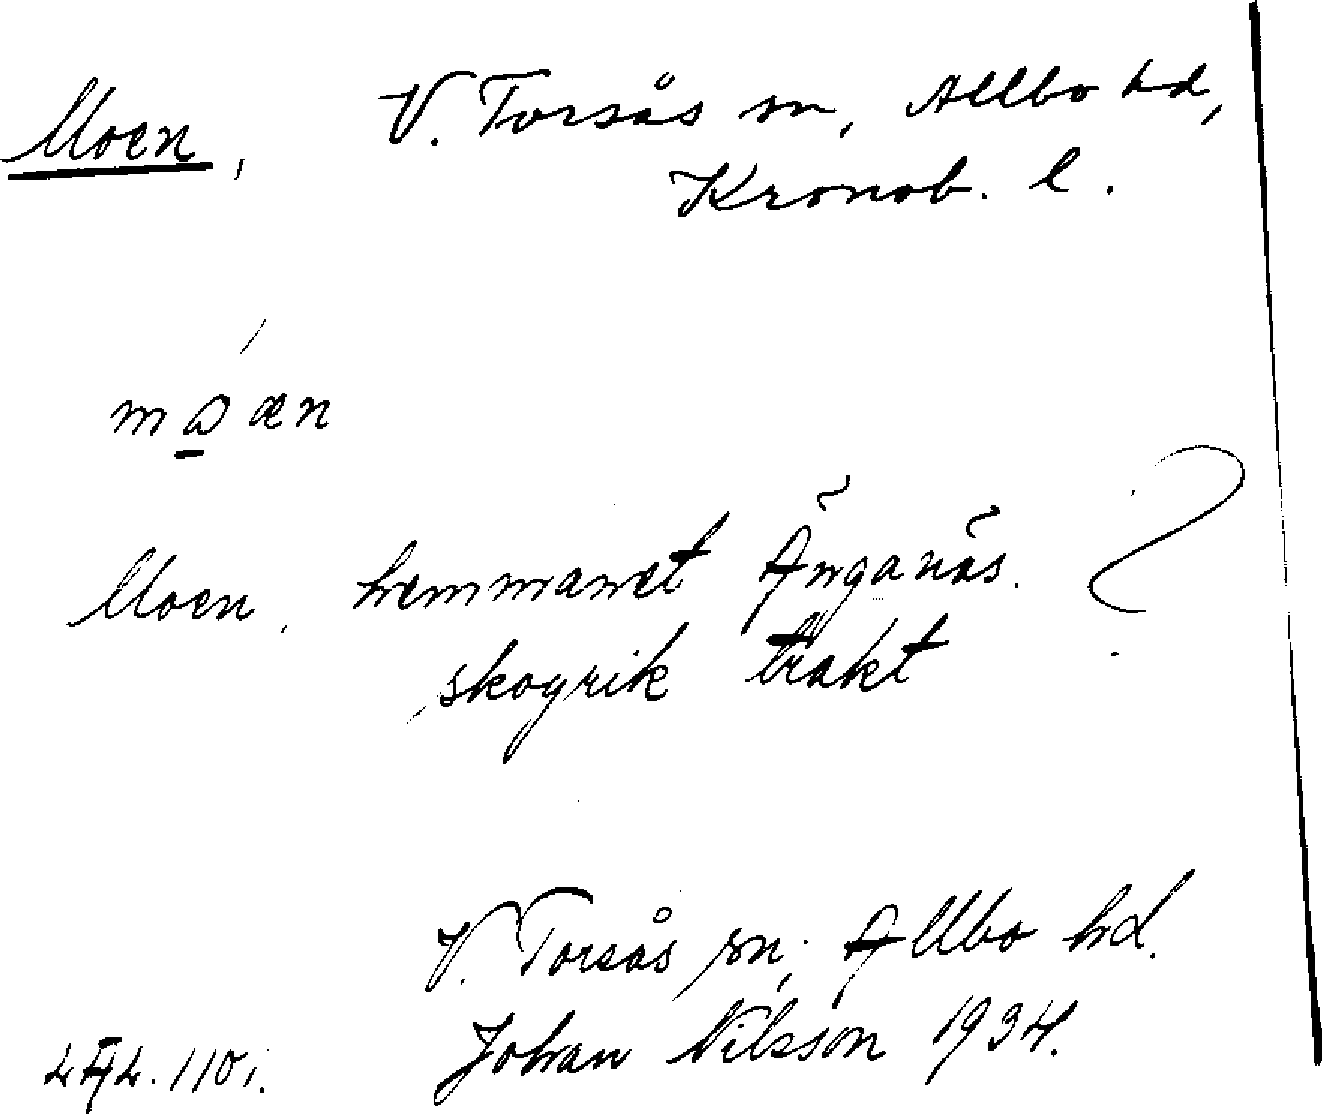 Moen, V. Torsås sn, Allbo hd,
Kronob. l.
Moen, hemmanet Änganäs.
skogrik trakt
V. Torsås sn, Allbo hd.
Johan Nilsson 1934.